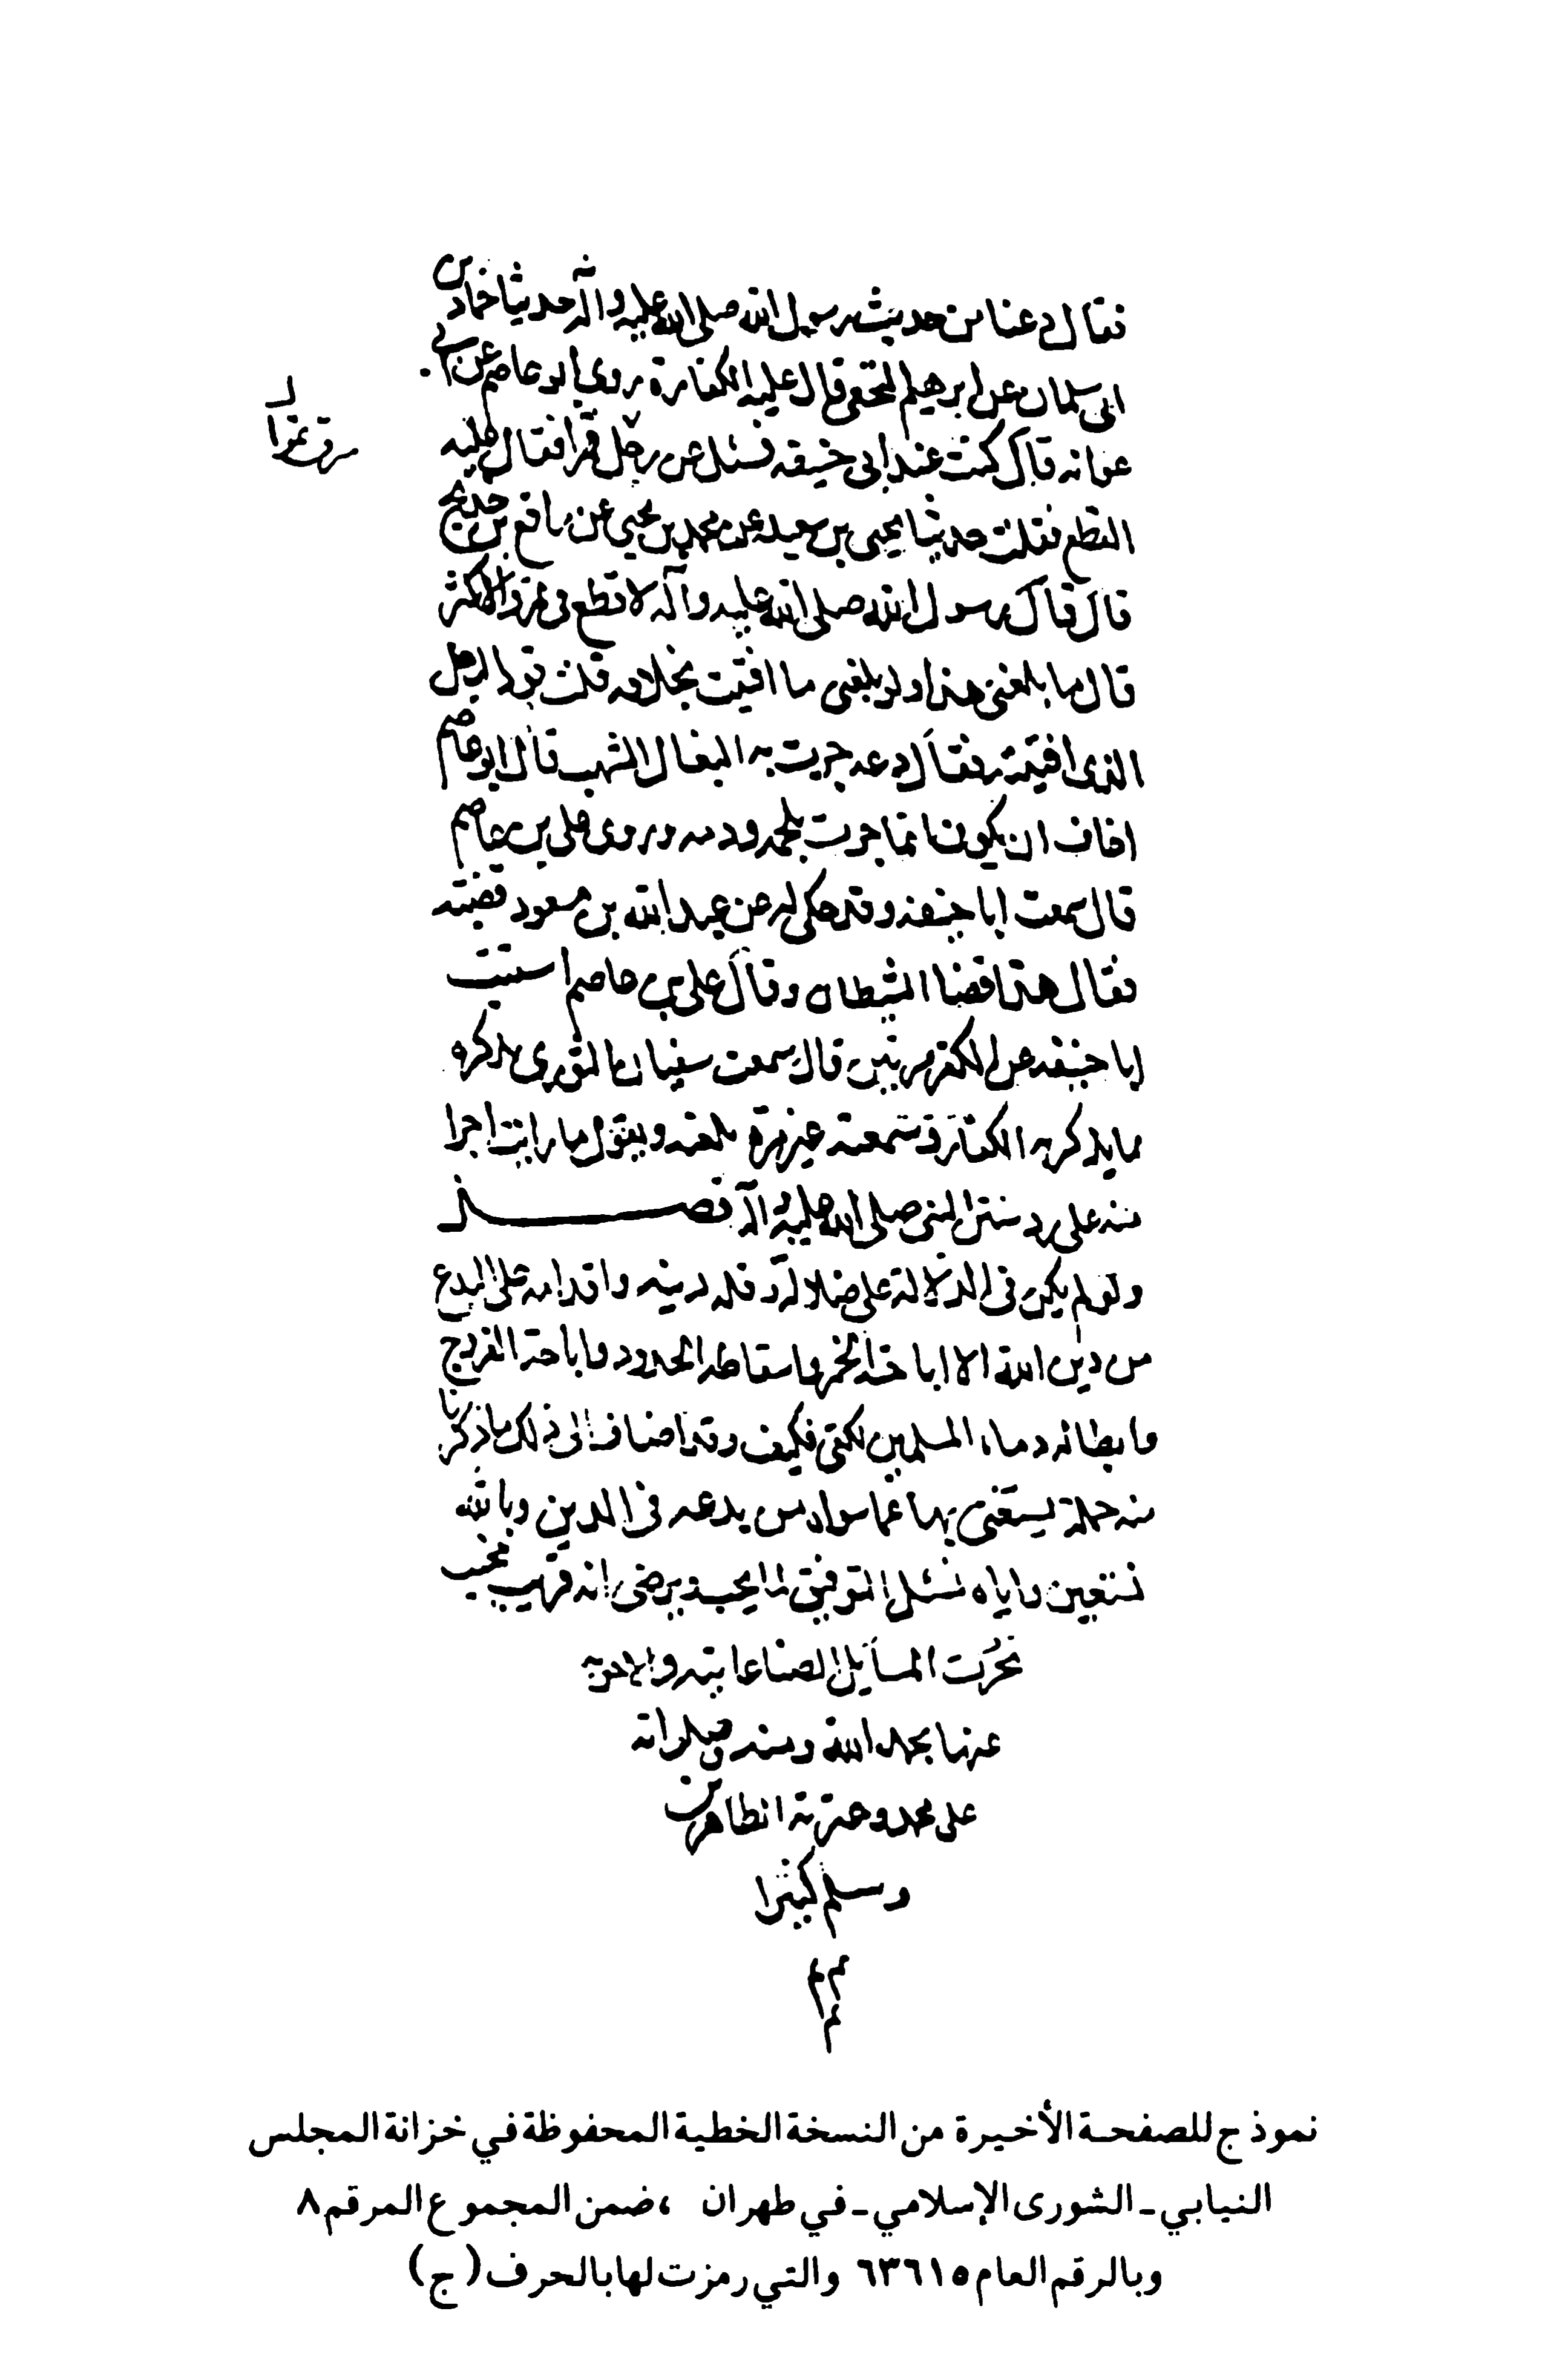 فقال دعنا من حديث رسول الله صلى الله عليه وآله حدثنا حماد بن
ابى سلمان عن ابرهيم النخعى قال عليه الكفارة وروى ابو عاصم عن ابى
عوانه قال كنت عند ابى حنيفه فسئل عن رجل سرق تمرا فقال عليه
القطع فقلت حدثنا يحيى بن سعيد عن محمد بن يحيى عن رافع بن خديج
قال قال رسول الله صلى الله عليه وآله لا قطع فى ثمر ولا كثر
قال ما بلغنى هذا ولو بلغنى ما افتيت بخلافه قلت فرد الرجل
الذى افتيته فقال دعه جرت به البغال الشهب قال ابو عاصم
اخاف ان يكون انما جرت بلحمه ودمه وروى على بن عاصم
قال سمعت ابا حنيفه وقد حكى له عن عبد الله بن مسعود قضيته
فقال هذا قضا الشيطان وقال على بن عاصم استتيب
ابا حنيفه عن الكفر مرتين قال سمعت سفيان الثورى يذكره
بما يذكر به الكفار وسمعته غير مرة يلعنه ويقول ما رايت اجرا
منه على رد سنن النبى صلى الله عليه وآله فصل
ولو لم يكن فى الدلالة على ضلاله وقله دينه واقدامه على البدع
من دين الله الا اباحته الخمر واسقاطه الحدود واباحته الفروج
وابطاله دماء المسلمين لكفى فكيف وقد اضاف الى ذلك ما ذكرنا
منه جملة يستغنى بها عما سواه من بدعه فى الدين وبالله
نستعين واياه نسئل التوفيق لما يحب ويرضى انه قريب مجيب
نجزت المسايل الصاغانيه والاجوبه
عنها بحمد الله ومنه وصلواته
على محمد وعترته الطاهرين
وسلم كثيرا
نموذج للصفحة الأخيرة من النسخة الخطية المحفوظة في خزانة المجلس
النيابي ـ الشورى الإسلامي ـ في طهران ، ضمن المجموع المرقم ٨
وبالرقم العام ٦٣٦١٥ والتي رمزت لها بالحرف (ج)